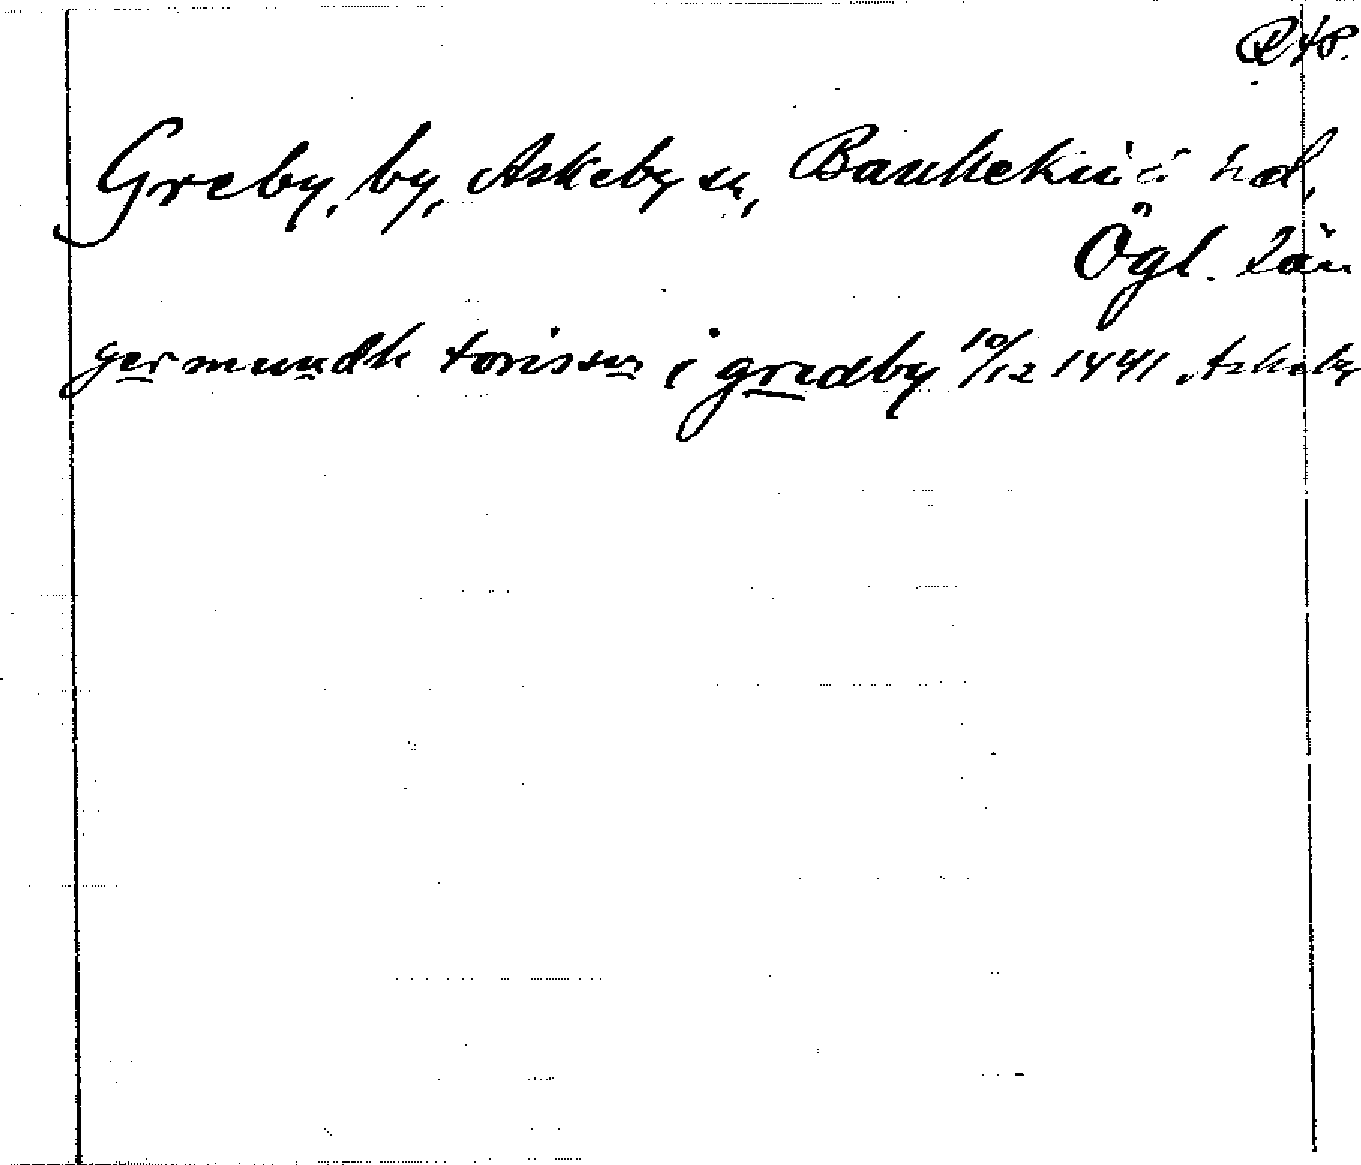 Greby, by, Askeby sn, Bankekinds hd,
Ögl. län
germundh torisson i gredby 10/12 1441 Askeby